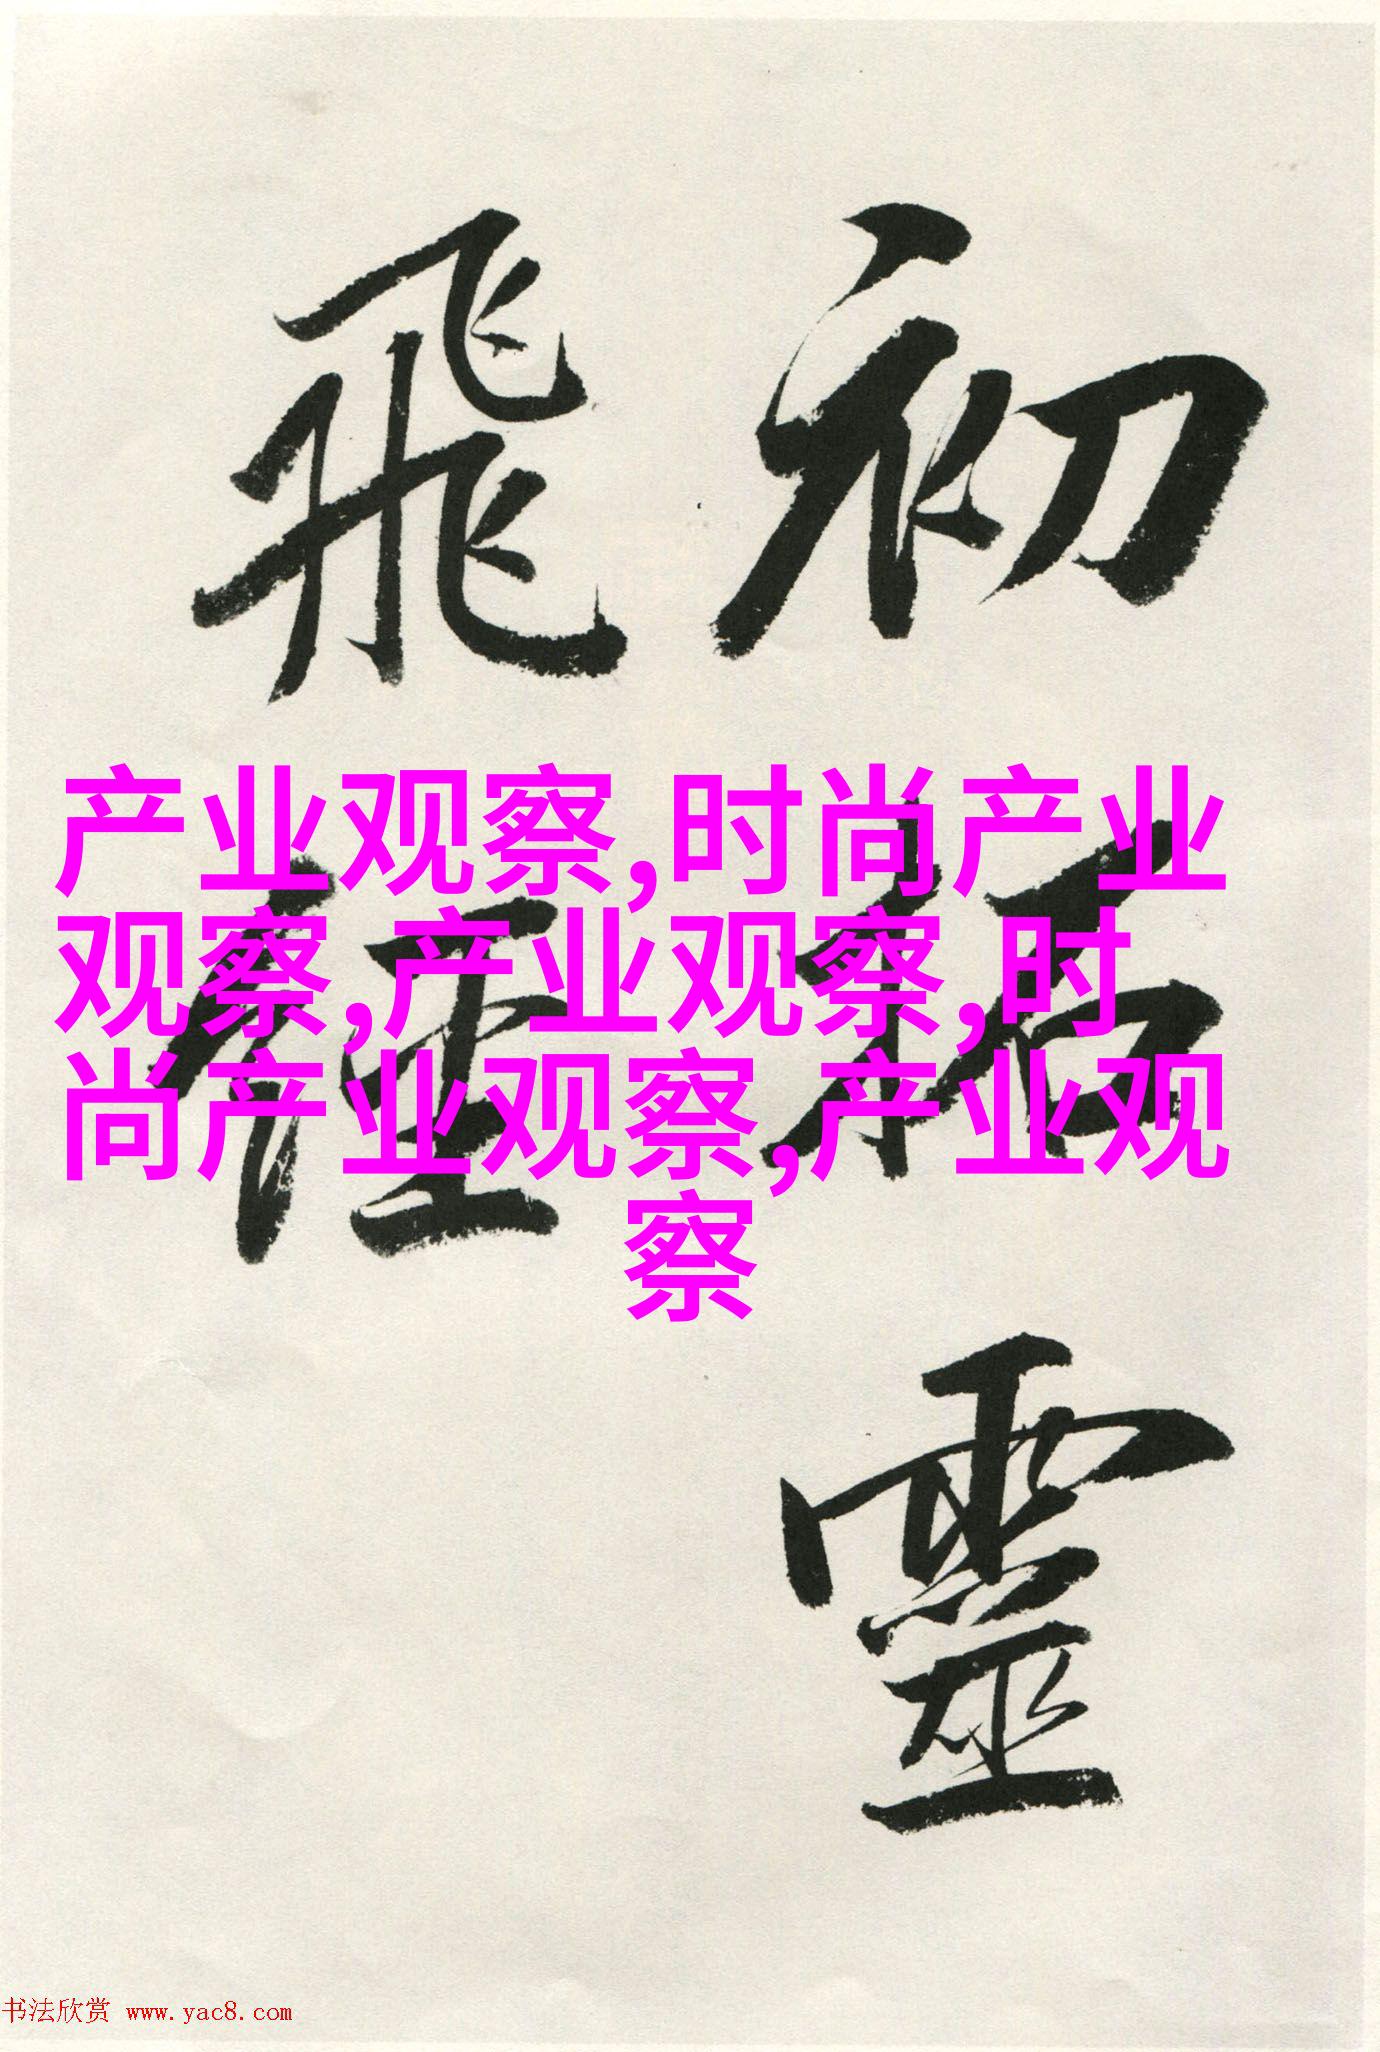 初拓靈
飛經
产业观察,时尚产业
观察,产业观察,时
尚产业观察,产业观
察
书法欣赏 www.yac8.com